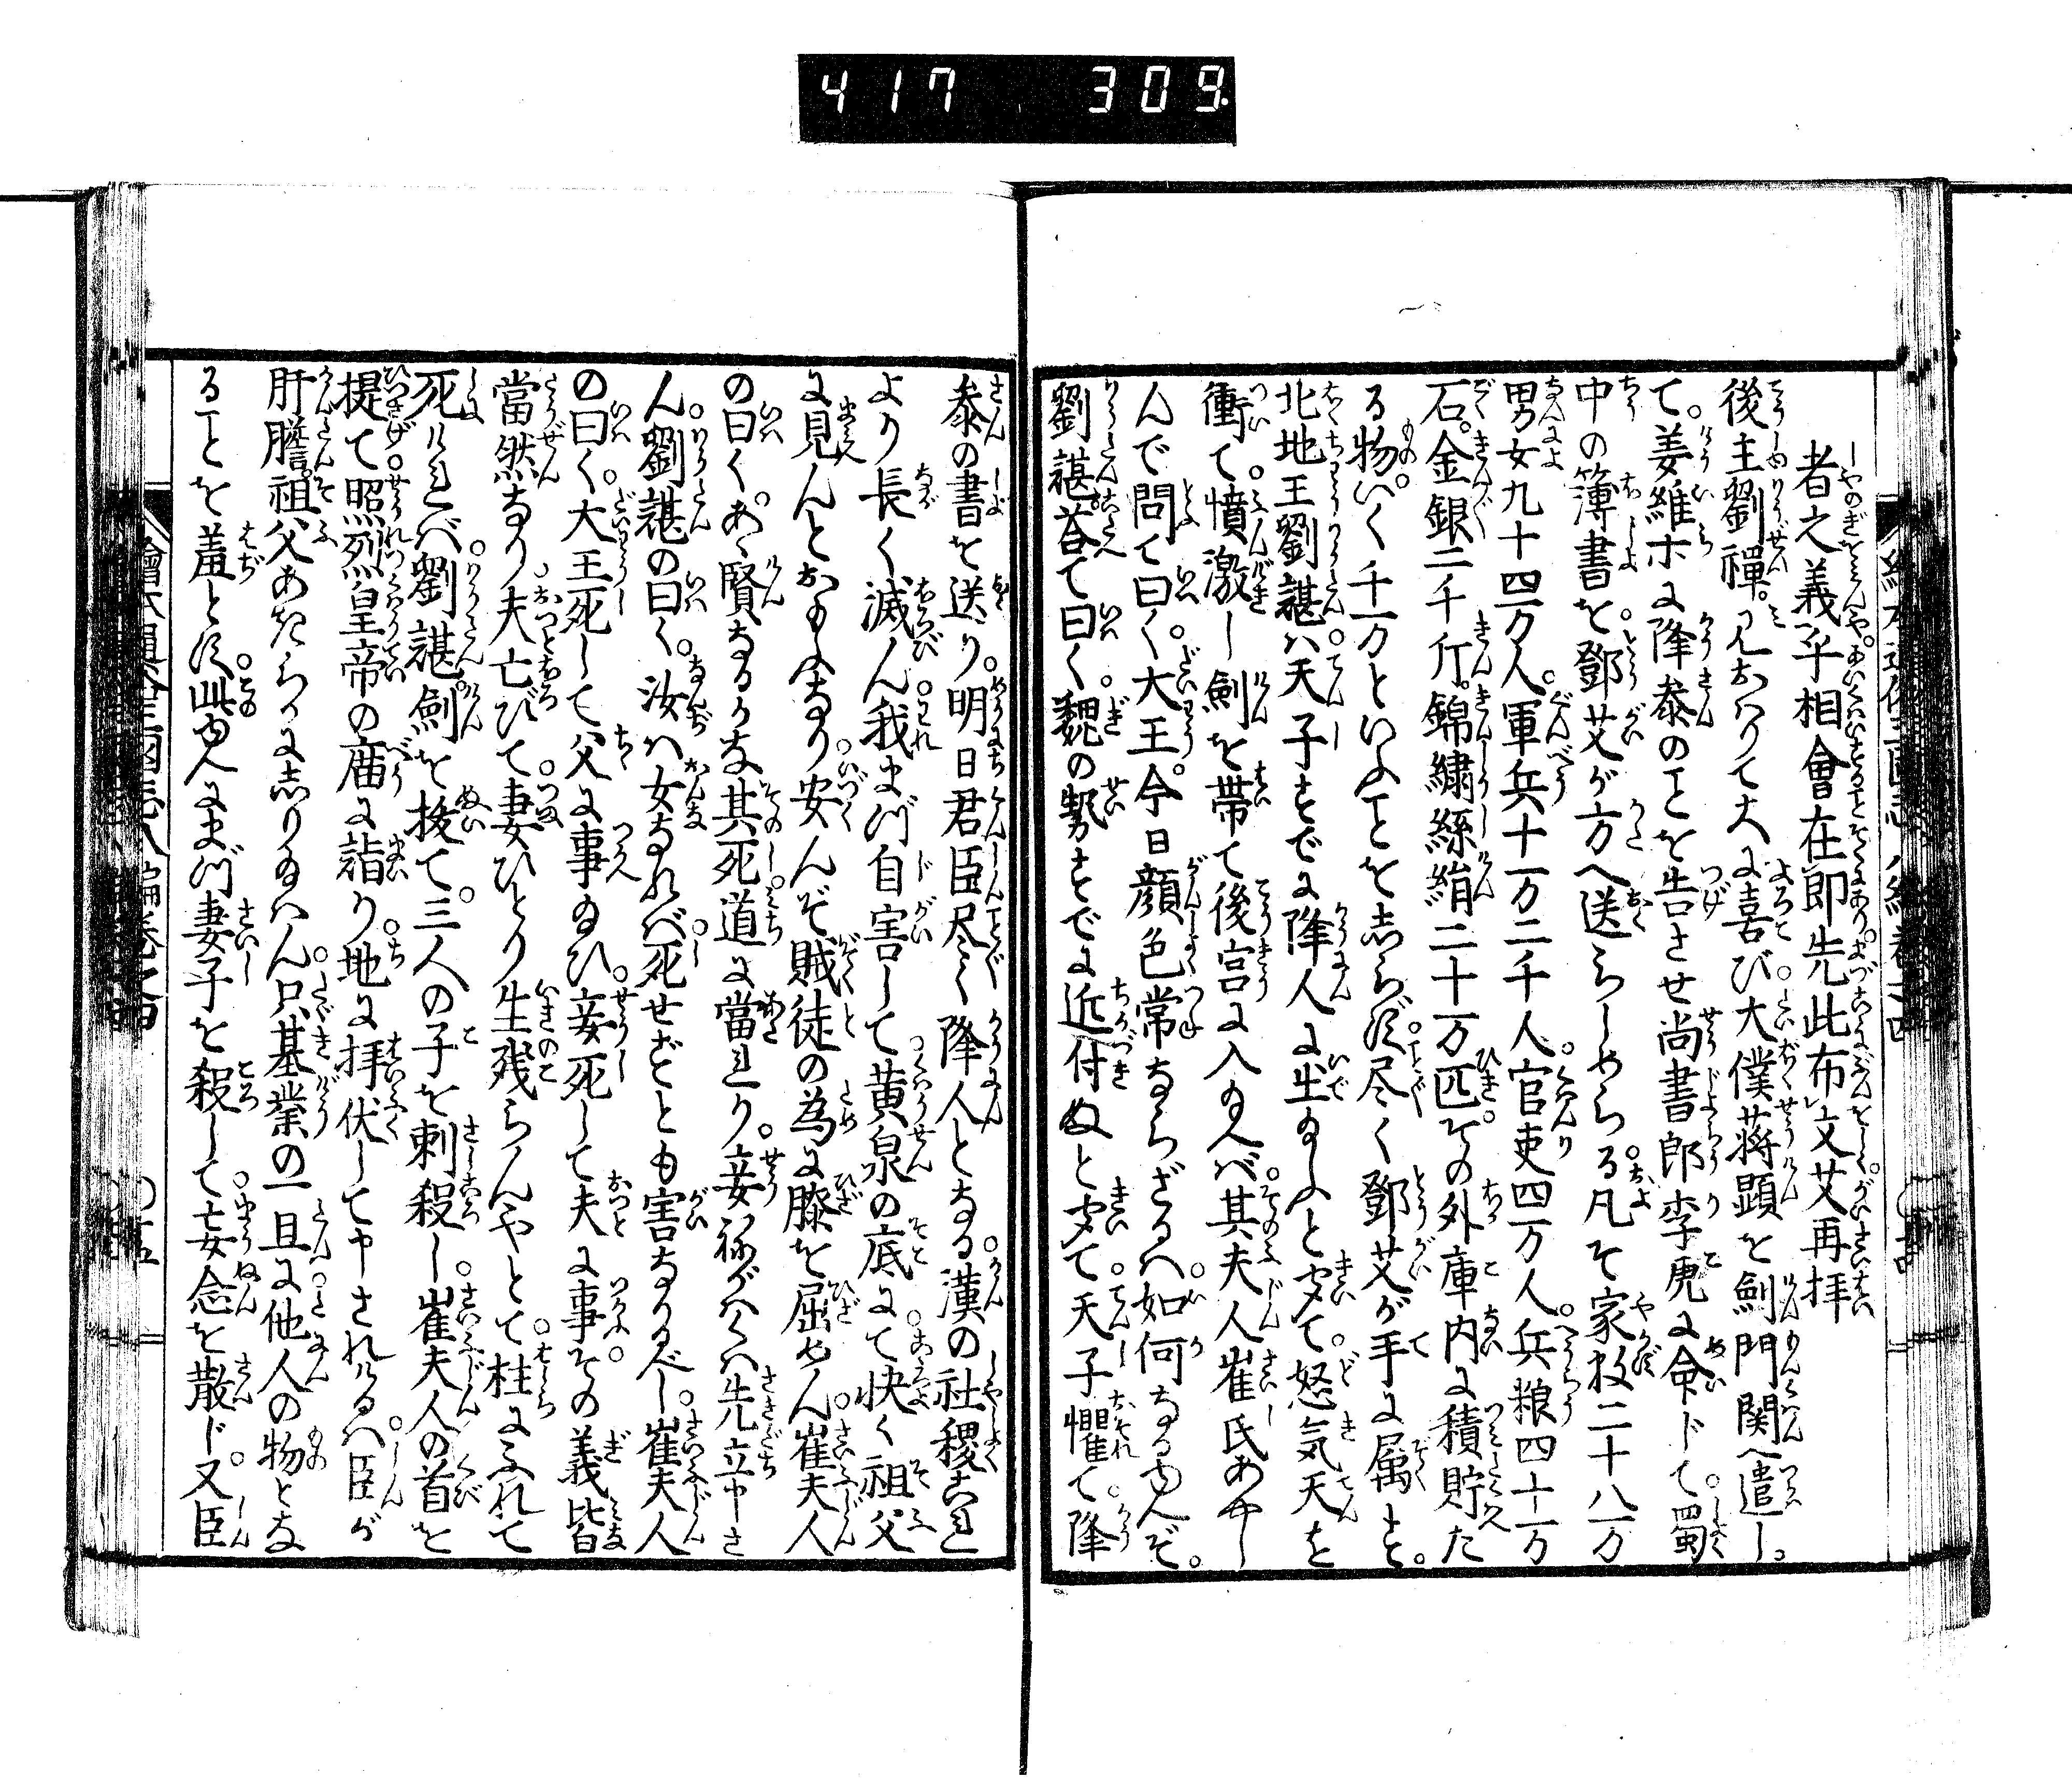 417 309.
者之義乎相會在即先此布文艾再拝
後主劉禪見おハりて大に喜び大僕蒋顕を剣門関へ遣し
て姜維ホに降参のヿを告させ尚書郎李虎に命ドて蜀
中の簿書を鄧艾が方へ送らしめらる凡そ家数二十八万
男女九十四万人軍兵十一万二千人官吏四万人兵粮四十万
石金銀二千斤錦繍絲絹二十万匹その外庫内に積貯た
る物いく千万といふヿを志らず尽く鄧艾が手に属せり
北地王劉諶ハ天子すでに降人に出るふと聞て怒気天を
衝て憤激し剣を帯て後宮に入る人バ其夫人崔氏あやし
んで問て曰く大王今日顔色常ならざるハ如何なる由んぞ
劉諶答て曰く魏の勢すでに近付ぬと聞て天子懼て降
参の書を送り明日君臣尽く降人となる漢の社稷これ
より長く滅ん我まづ自害して黄泉の底にて快く祖父
に見んとおもふなり安んぞ賊徒の為に膝を屈せん崔夫人
の曰くあゝ賢なるかな其死道に當れり妾ねがハくハ先立申さ
ん劉諶の曰く汝ハ女なれバ死せずとも害なかるべし崔夫人
の曰く大王死して父に事るひ妾死して夫に事その義皆
當然なり夫亡びて妻ひとり生残らんやとて柱にふれて
死けれバ劉諶剣を抜て三人の子を刺殺し崔夫人の首を
提て昭烈皇帝の廟に詣り地に拝伏して申されけるハ臣が
肝膽祖父あきらかに志りるハん只基業の一旦に他人の物とな
るヿを羞とす此由人にまづ妻子を殺して妄念を散ド又臣